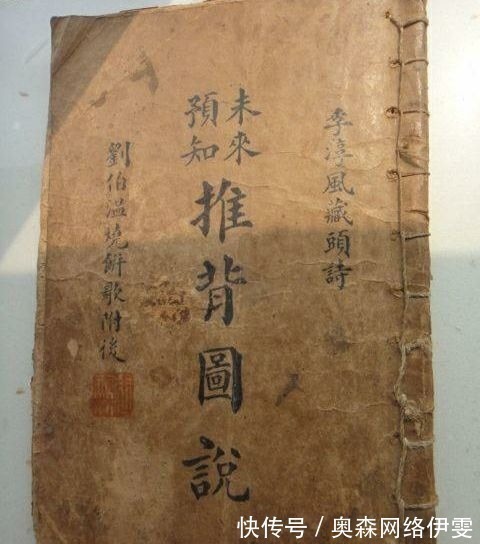 李淳風藏頭詩
未來
預知
推背圖說
劉伯溫燒餅歌附後
快传号 / 奥森网络伊雯